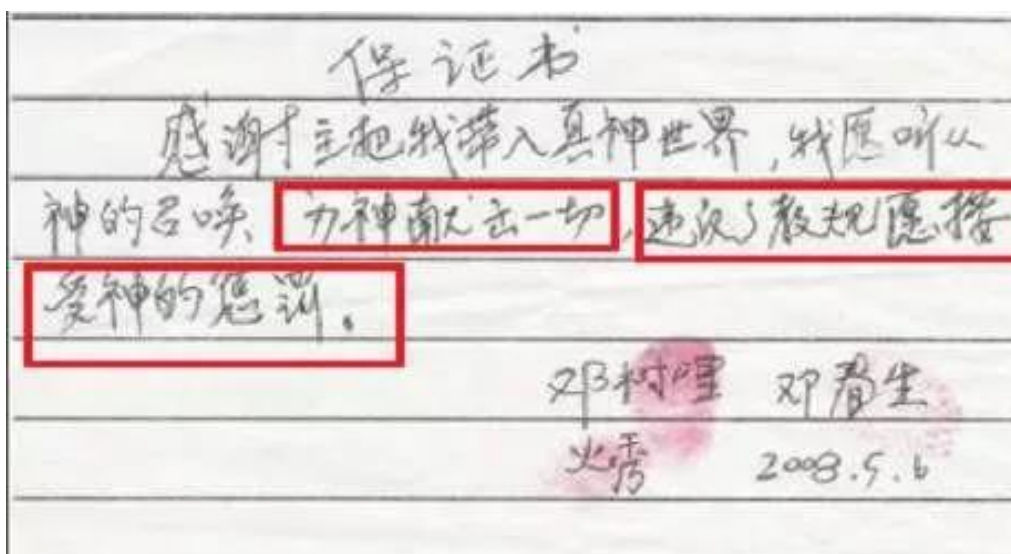 保证书
感谢主把我带入真神世界,我愿听从
神的召唤 为神献出一切,违反了教规愿接
受神的惩罚。
邓树 邓春生
火秀 2008.5.6